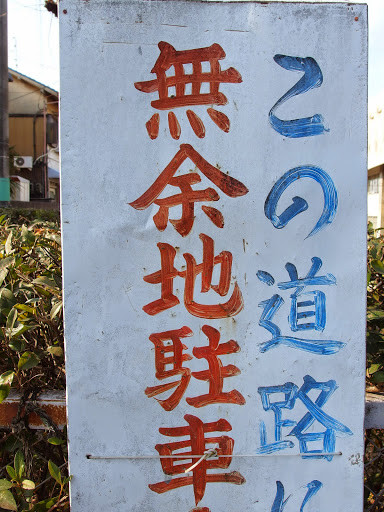 この道路に
無余地駐車